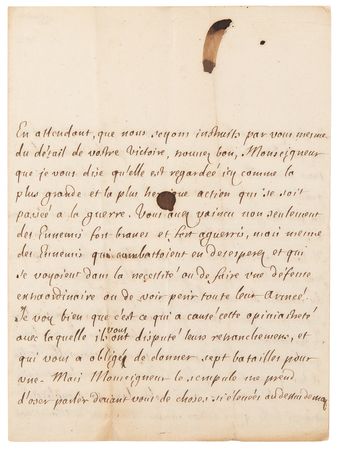 En attendant, que nous soyons instruits par vous mesme
du détail de vostre Victoire, trouvez bon, Monseigneur
que je vous dise qu'elle est regardée icy comme la
plus grande et la plus heroique action qui se soit
passée a la guerre. Vous avez vaincu non seulement
des Ennemis fort braves et fort aguerris, mais mesme
des Ennemis qui combattoient en desesperez et qui
se voyoient dans la necessité ou de faire une défense
extraordinaire ou de voir perir toute leur Armée.
Je voy bien que c'est ce qui a causé cette opiniastreté
avec laquelle ils vous ont disputé leurs retranchemens, et
qui vous a obligé de donner sept batailles pour
une. Mais Monseigneur le scrupule me prend
d'oser parler devant vous de choses si élevées au dessus de moy